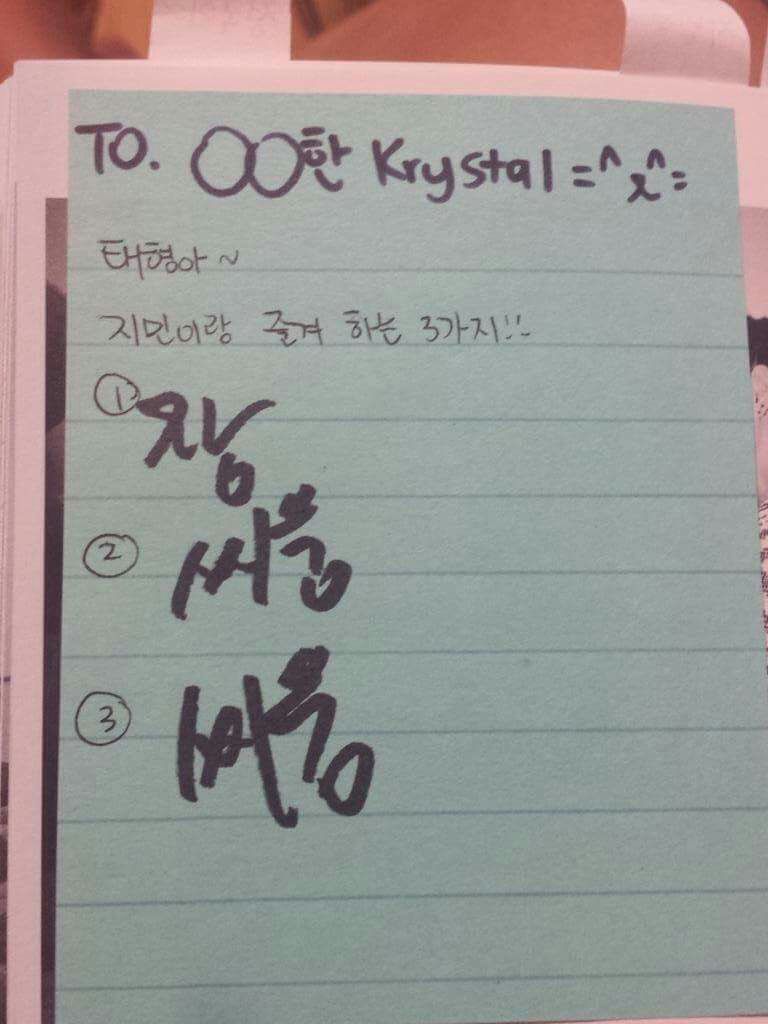 TO. OO한 Krystal =^ㅅ^=
태형아~
지민이랑 즐겨 하는 3가지!!
① 잠
② 싸움
③ 싸움